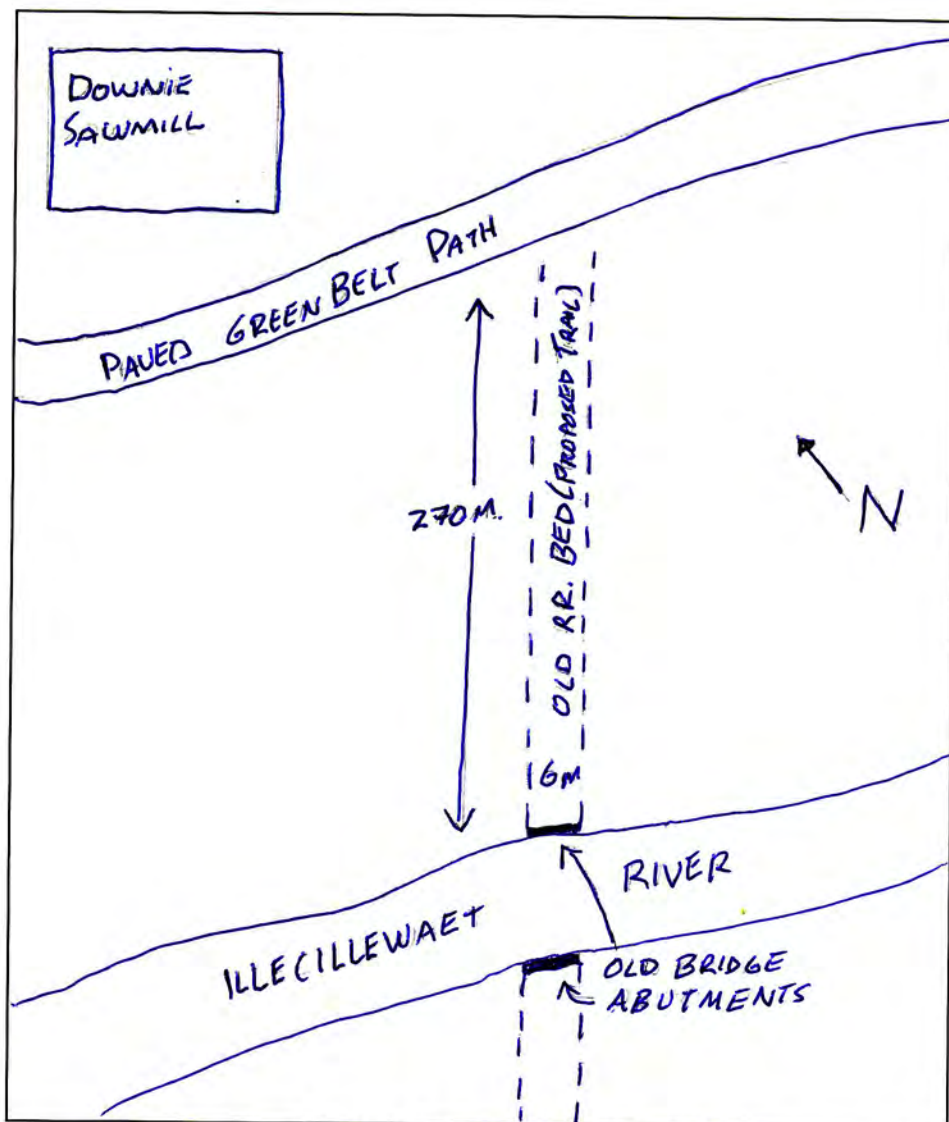 DOWNIE
SAWMILL
PAVED GREEN BELT PATH
270 M.
OLD RR. BED (PROPOSED TRAIL)
N
6M
ILLECILLEWAET RIVER
OLD BRIDGE
ABUTMENTS